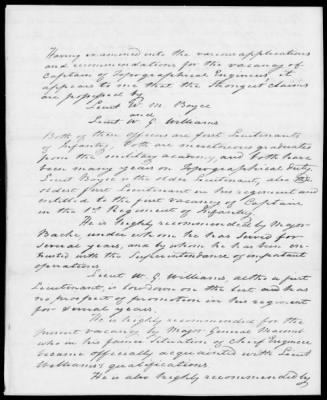 Having examined into the various applications
and recommendations for the vacancy of
Captain of Topographical Engineers, it
appears to me that the strongest claims
are possessed by
Lieut W. M. Boyce
and
Lieut W G Williams
Both of these officers are first Lieutenants
of Infantry, both are meritorious graduates
from the military academy, and both have
been many years on Topographical duty.
Lieut Boyce is the older Lieutenant, also the
oldest first Lieutenant in his regiment and
entitled to the first vacancy of Captain
in the 1st Regiment of Infantry.
He is highly recommended by Major
Bache, under whom he has served for
several years, and by whom he has been en-
trusted with the Superintendance of important
operations.
Lieut W. G. Williams, altho a first
Lieutenant, is low down on the list and has
no prospect of promotion in his regiment
for several years.
He is highly recommended for the
present vacancy by Major General Macomb
who in his former situation of Chief Engineer
became officially acquainted with Lieut
Williams's qualifications.
He is also highly recommended by